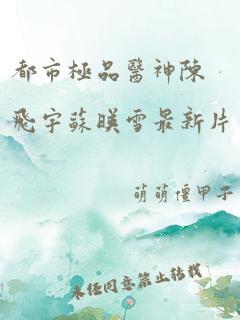 都市極品醫神陳
飛宇蘇映雪最新片
萌萌僵甲子
未任同意禁止转载